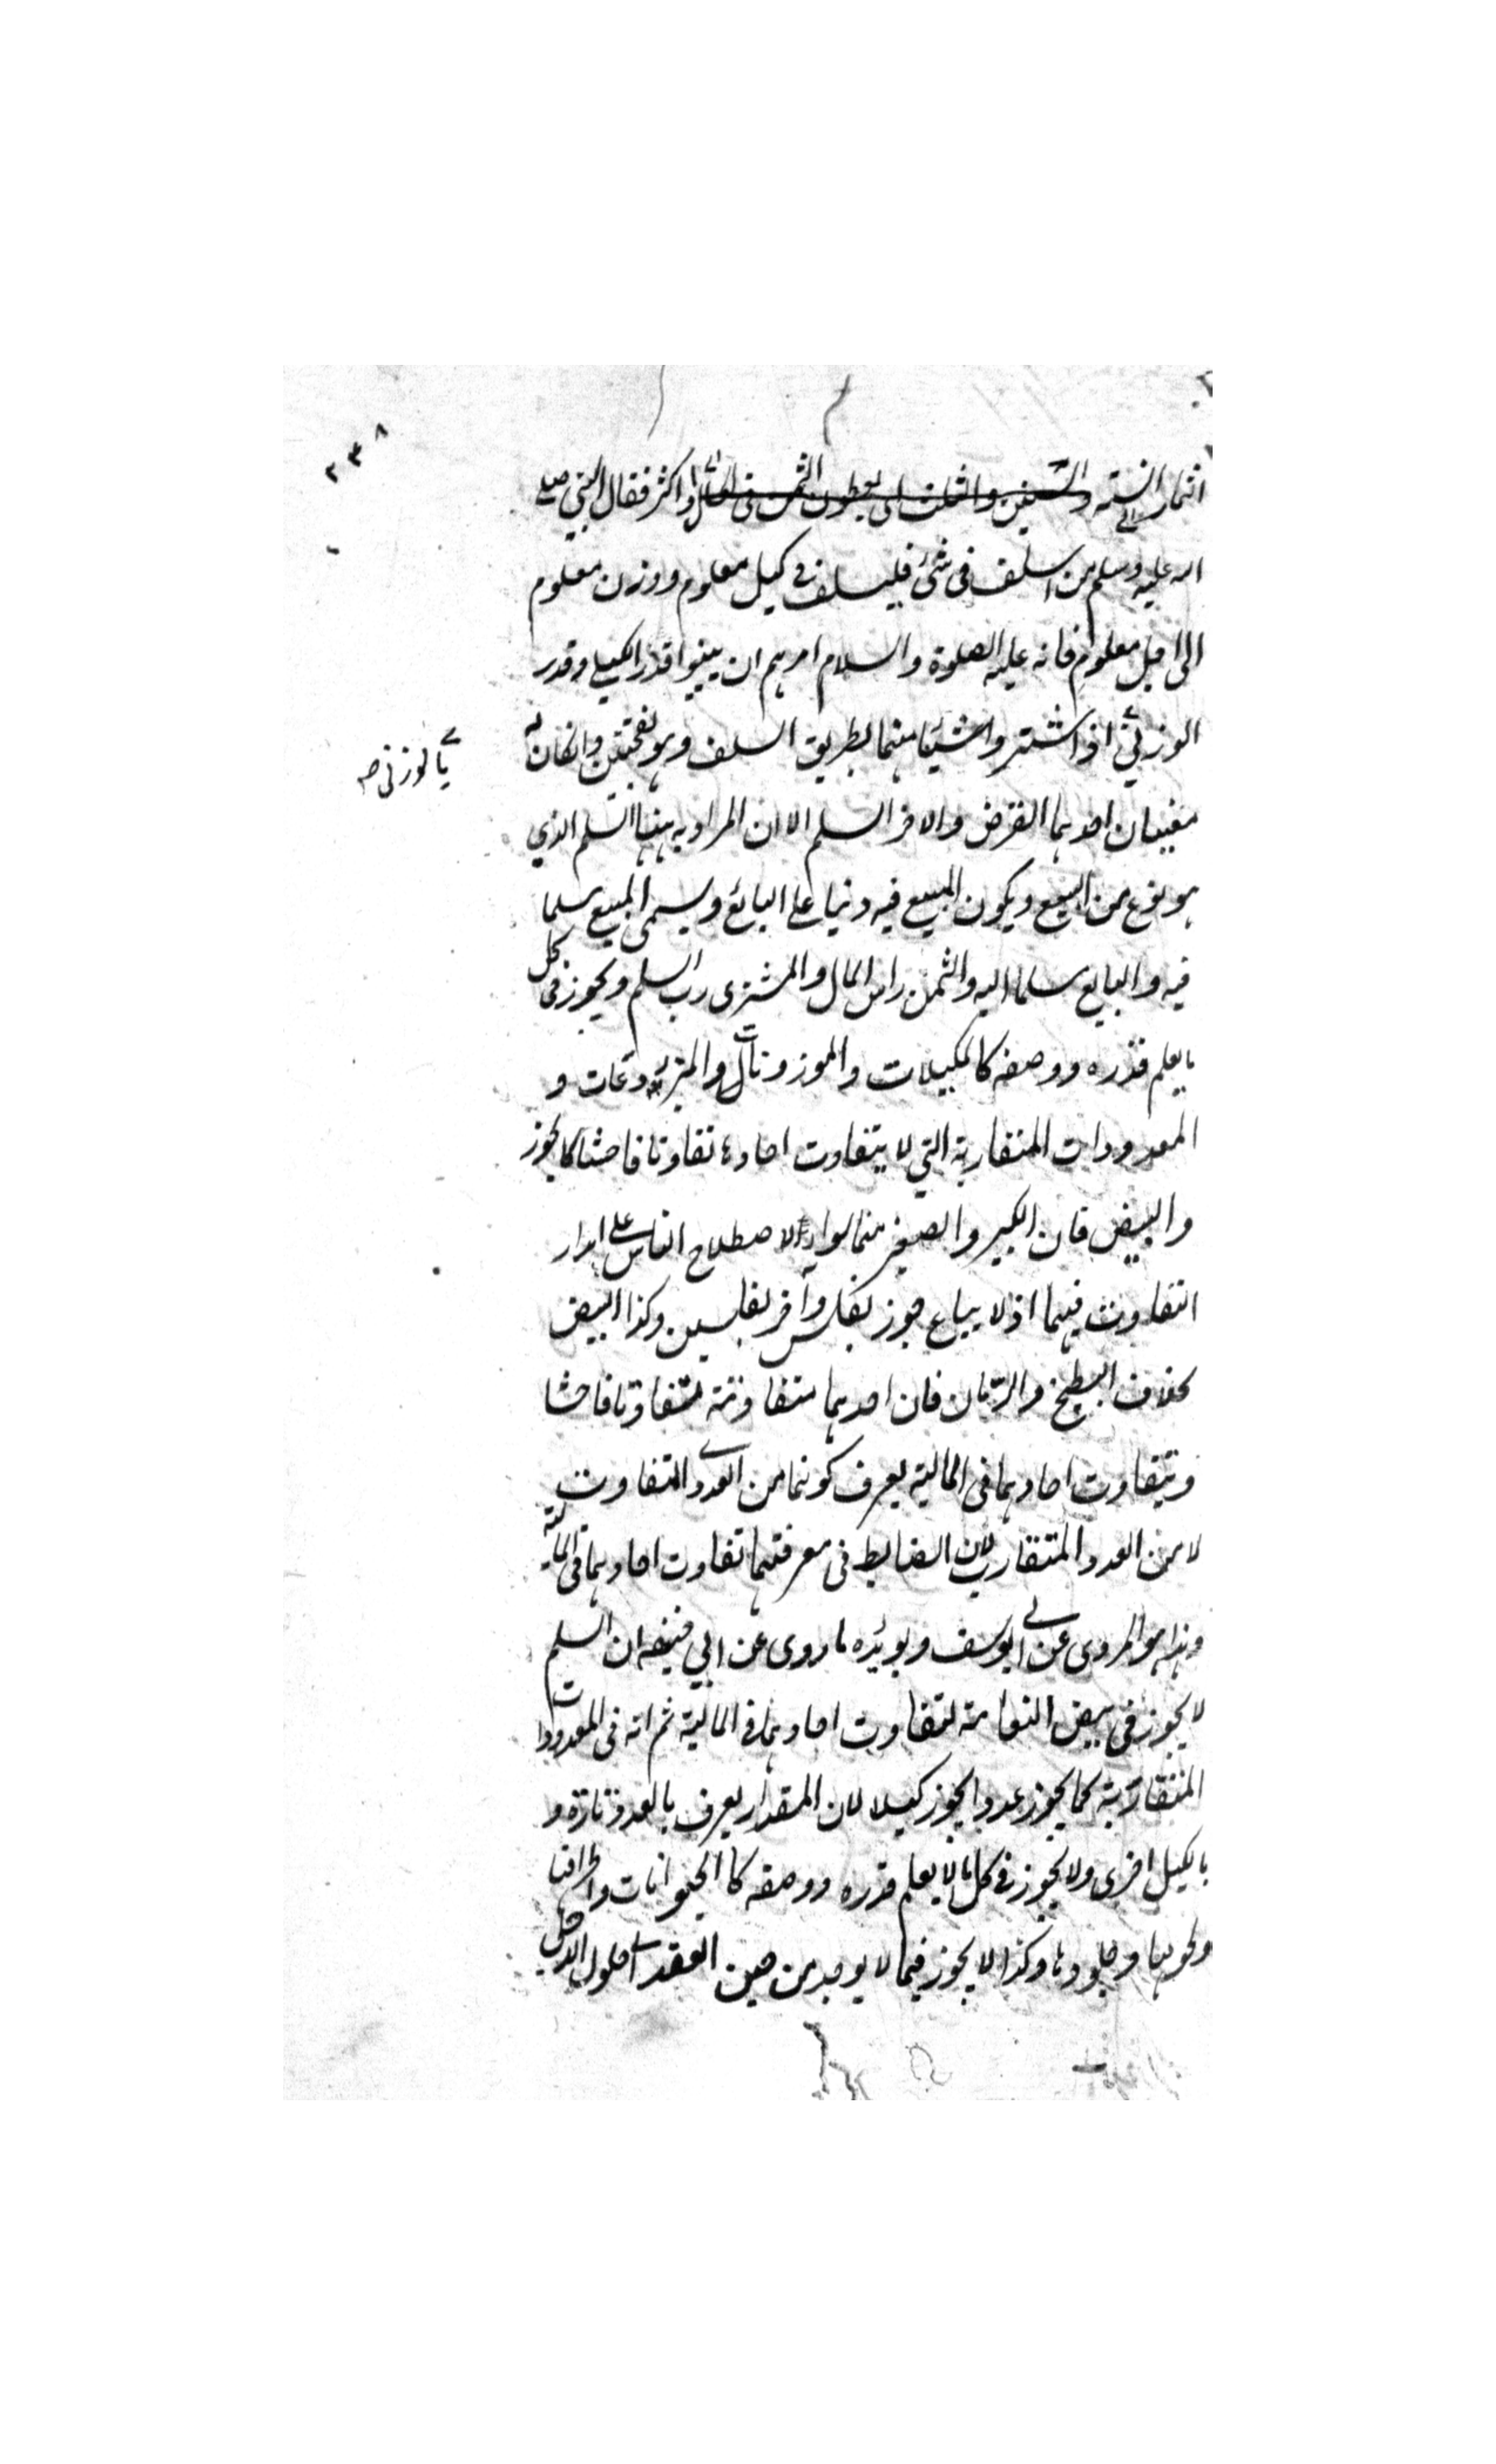 ٢٣٨
اثمار السنة والسنتين والثلث اى يعطون الثمن فى الحال او اكثر فقال النبى صلى
الله عليه وسلم من اسلف فى شئ فليسلف فى كيل معلوم ووزن معلوم
الى اجل معلوم فانه عليه الصلوة والسلام امرهم ان يبينوا قدر الكيلى وقدر
الوزنى اذا اشتروا شيئا منهما بطريق السلف وهو بفتحتين وان كان له
معنيان احدهما القرض والاخر السلم الا ان المراد به ههنا السلم الذي
هو نوع من البيع ويكون المبيع فيه دينا على البائع ويسمى المبيع سلما
فيه والبايع سلما اليه والثمن راس المال والمشترى رب السلم ويجوز فى كل
ما يعلم قدره ووصفه كالمكيلات والموزونات والمزروعات و
المعدودات المتقاربة التي لا يتفاوت احادها تفاوتا فاحشا كالجوز
والبيض فان الكبير والصغير منهما سواء لاصطلاح الناس على اهدار
التفاوت فيهما اذ لا يباع جوز بفلس وآخر بفلسين وكذا البيض
بخلاف البطيخ والرمان فان احدهما متفاوتة تفاوتا فاحشا
وبتفاوت احادهما فى المالية يعرف كونهما من العدد المتفاوت
لا من العدد المتقارب لان الضابط فى معرفتهما تفاوت احادهما فى المالية
وهذا هو المروى عن ابى يوسف ويؤيده ما روى عن ابي حنيفه ان السلم
لا يجوز فى بيض النعامة لتفاوت احادهما فى المالية ثم انه فى المعدودات
المتقاربة كما يجوز عددا يجوز كيلا لان المقدار يعرف بالعدد تارة و
بالكيل اخرى ولا يجوز فى كل ما لا يعلم قدره ووصفه كالحيوانات واطرافها
ولحومها وجلودها وكذا لا يجوز فيما لا يوجد من حين العقد الى حلول الاجل